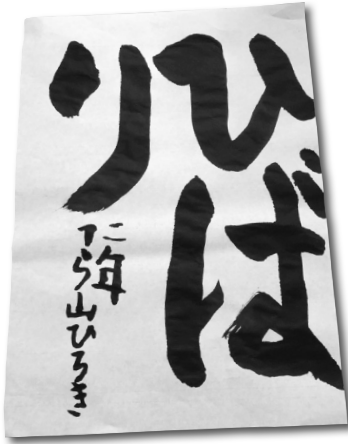 ひば
り
二年
たら山ひろき